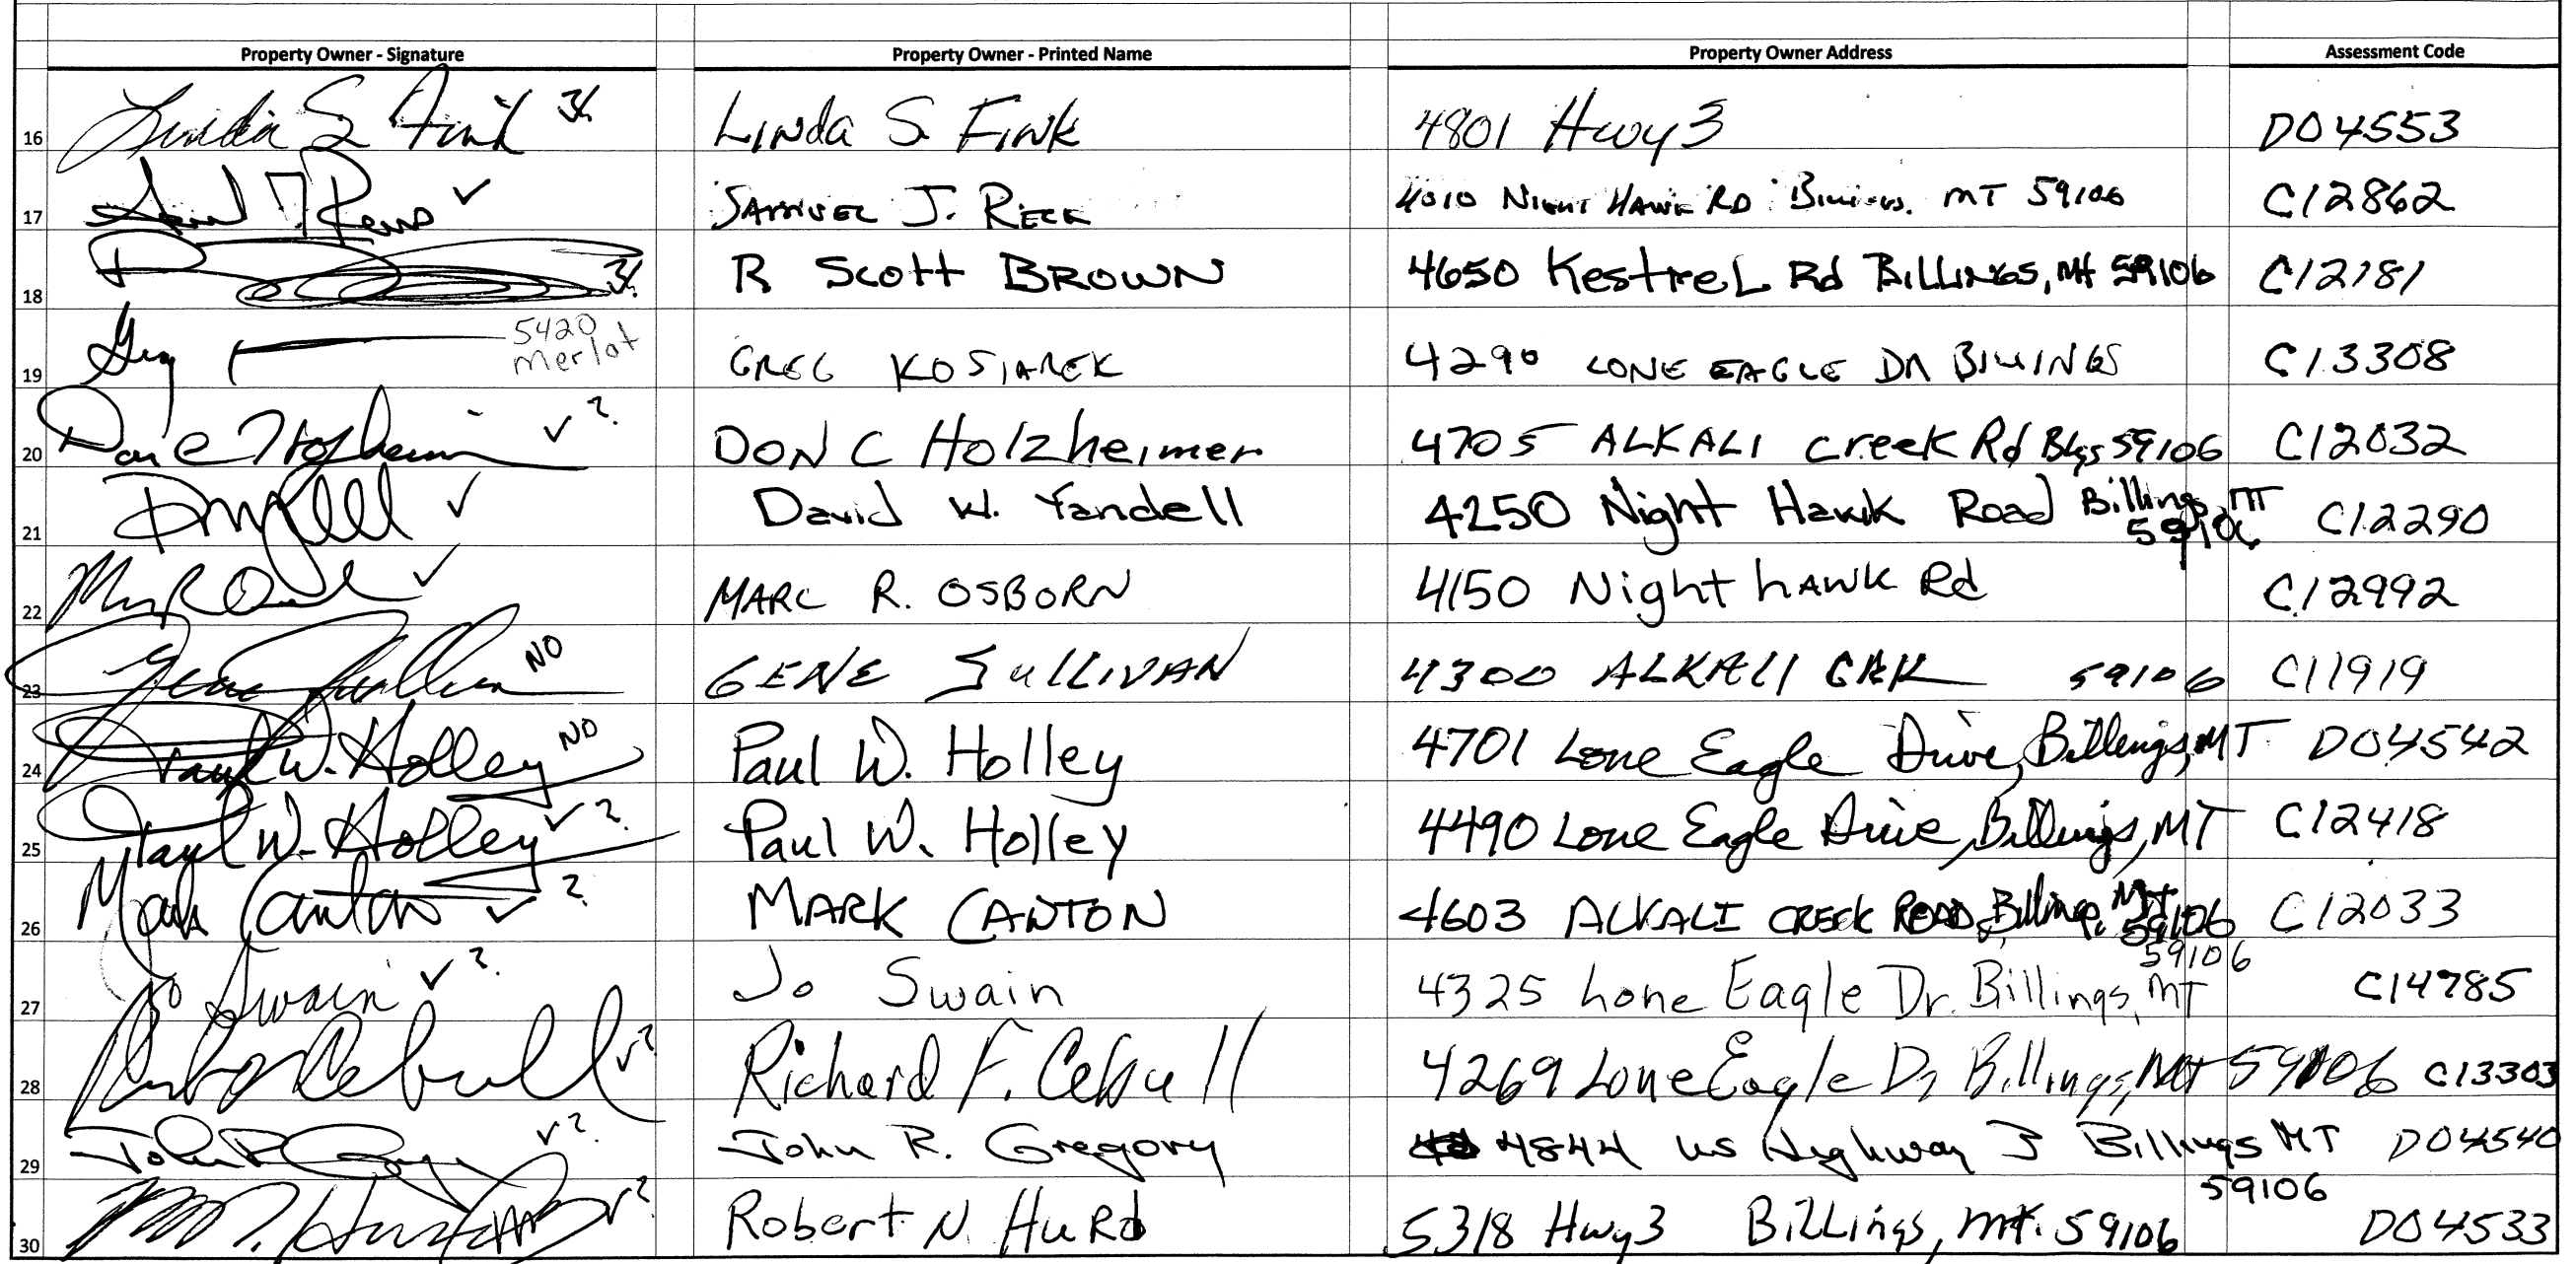 Property Owner - Signature Property Owner - Printed Name Property Owner Address Assessment Code
16 Linda S Fink LINda S FINK 4801 Hwy 3 D04553
17 SAMUEL J. RECK 4010 NIGHT HAWK RD Billings. MT 59106 C12862
18 R Scott BROWN 4650 KestreL Rd BILLINGS, Mt 59106 C12181
19 Greg 5420 merlot GREG KOSIAREK 4290 LONE EAGLE DR BILLINGS C13308
20 Don C Holzheimer ✓ ? DON C Holzheimer 4705 ALKALI creek Rd Blgs 59106 C12032
21 ✓ David W. Yandell 4250 Night Hawk Road Billings, MT 59106 C12290
22 ✓ MARC R. OSBORN 4150 Night hAWK Rd C12992
23 Gene Sullivan NO GENE SULLIVAN 4300 ALKALI CRK 59106 C11919
24 Paul W. Holley NO Paul W. Holley 4701 Lone Eagle Drive, Billings, MT D04542
25 Paul W. Holley ✓ ? Paul W. Holley 4490 Lone Eagle Drive, Billings, MT C12418
26 Mark Canton ✓ ? MARK CANTON 4603 ALKALI CREEK ROAD, Billings, MT 59106 C12033
27 Jo Swain ✓ ? Jo Swain 4325 Lone Eagle Dr. Billings, MT 59106 C14785
28 Cebull ✓ ? Richard F. Cebull 4269 Lone Eagle Dr Billings, Mt 59106 C13303
29 John R Gregory ✓ ? John R. Gregory 4844 US Highway 3 Billings MT 59106 D04540
30 ✓ ? Robert N. HuRd 5318 Hwy 3 BiLLings, Mt. 59106 D04533